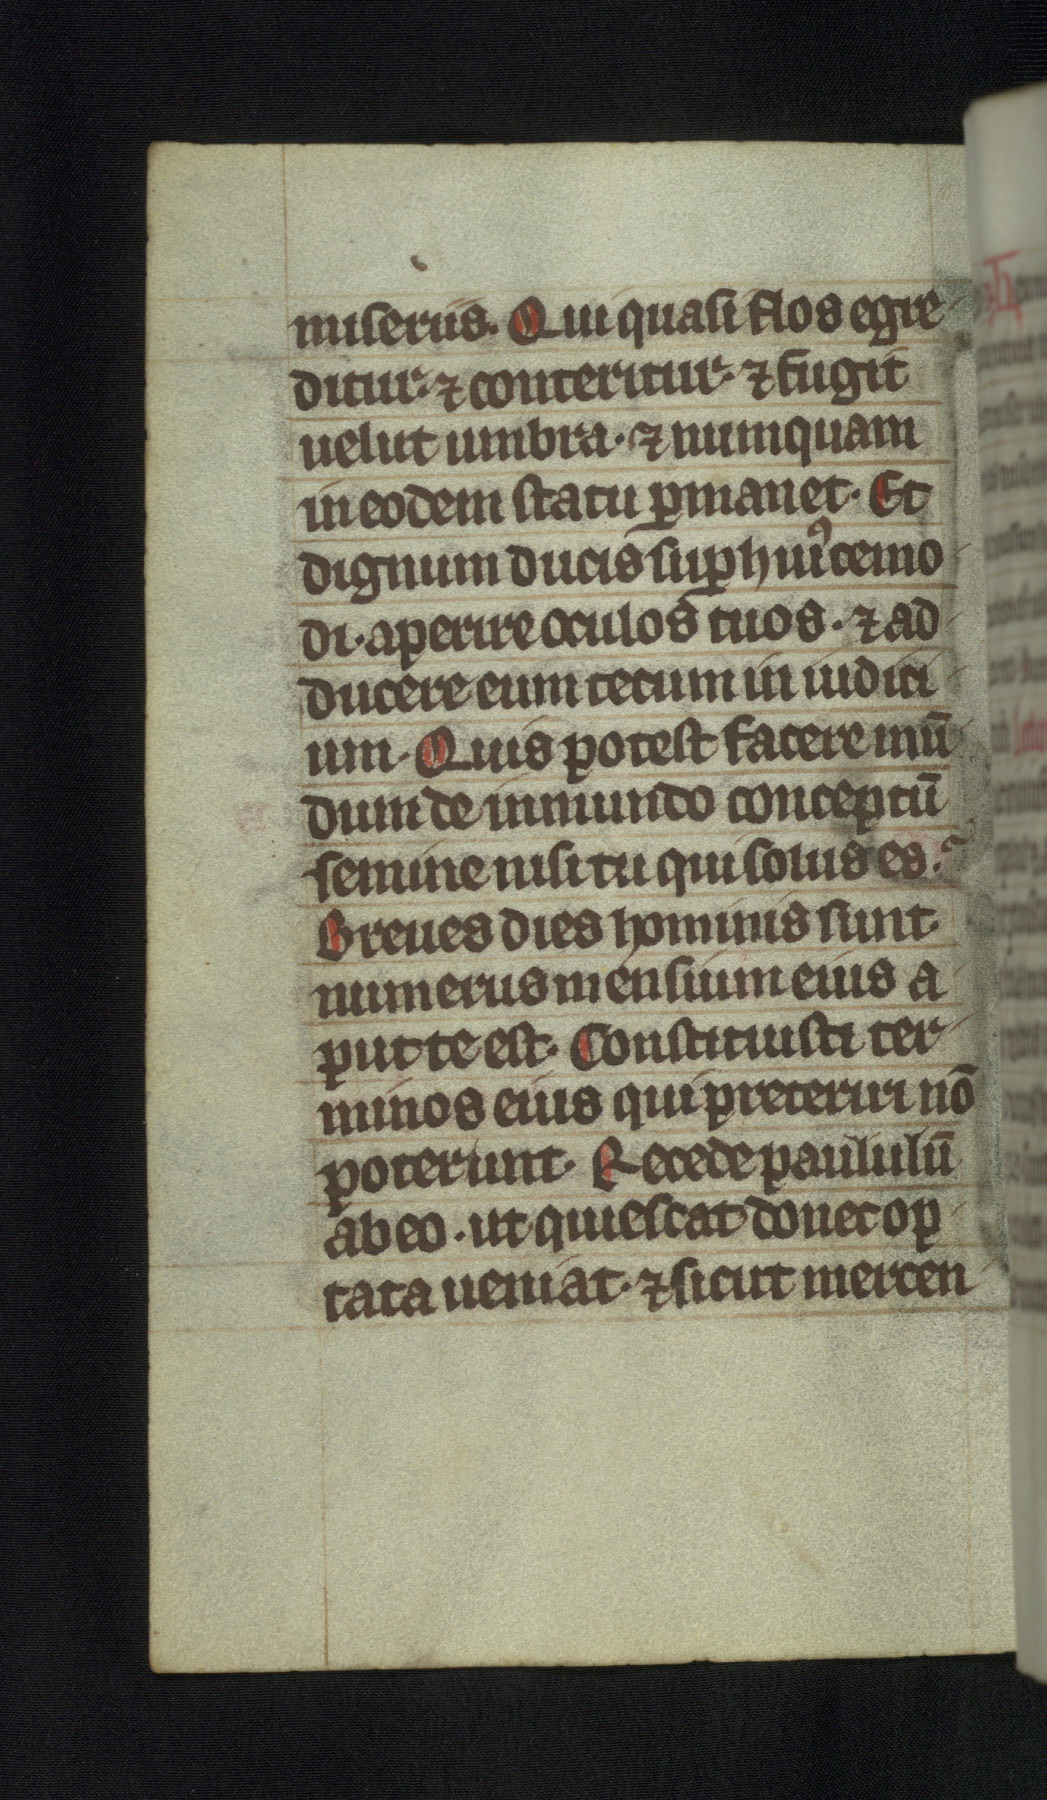 miseriis. Qui quasi flos egre
ditur ⁊ conteritur ⁊ fugit
uelut umbra. ⁊ numquam
in eodem statu ꝑmanet. Et
dignum ducis suꝑ huꝰcemo
di. aperire oculos tuos. ⁊ ad
ducere eum tecum in iudici
um. Quis potest facere mū
dum de inmundo conceptū
semine nisi tu qui solus es.
Breues dies hominis sunt
numerus mensium eius a
put te est. Constituisti ter
minos eius qui preteriri nō
poterunt. Recede paululū
ab eo. ut quiescat donec op
tata ueniat. ⁊ sicut mercen